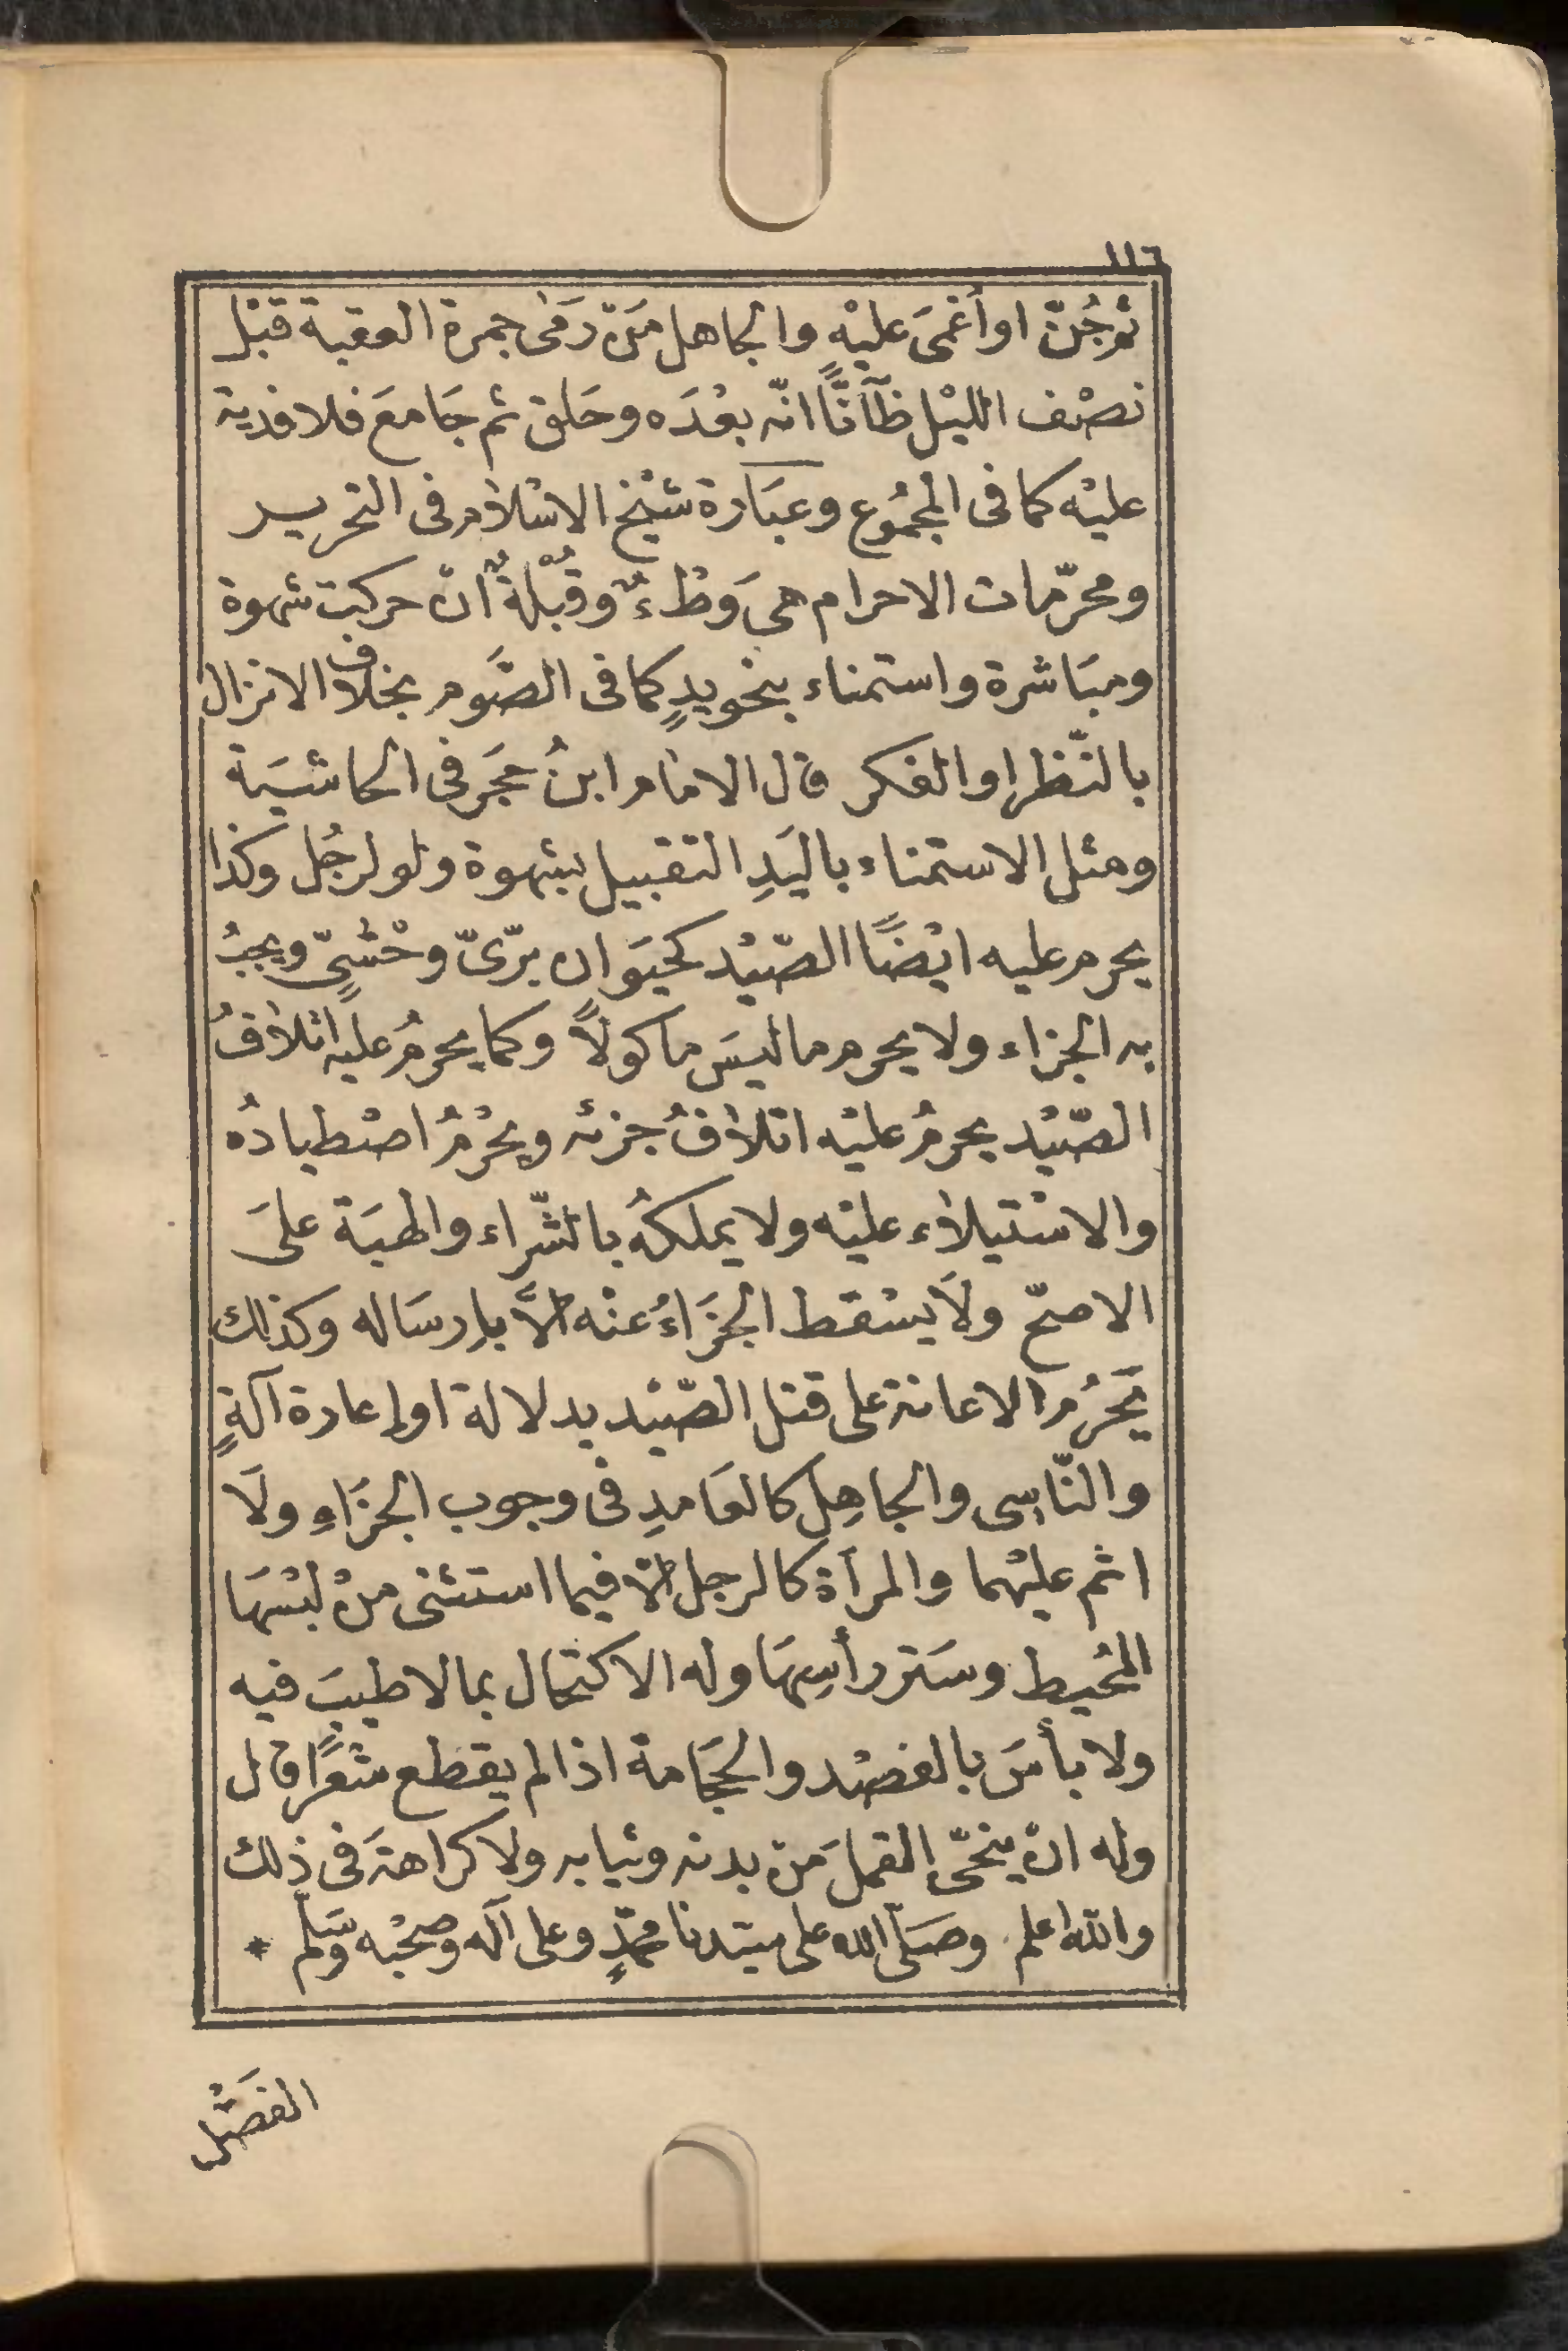 ١١٦
ثم جُنّ او أُغمىَ عليْهِ والجاهل مَنْ رَمٰى جمرة العقبة قبْل
نصْف اللّيْل ظآنًّا انّه بعْدَه وحَلق ثم جَامعَ فلا فدية
عليْه كما فى المجْمُوع وعبَارة شيْخ الاسْلاٰم فى التحرير
ومحرّمات الاحرام هي وَطْءٌ وقُبْلةٌ انْ حركت شهوة
ومبَاشرة واستمناء بنحو يدٍ كما فى الصَّوم بخلاف الانزال
بالنّظر او الفكر قال الامام ابنُ حجَر فى الحاشيَة
ومثل الاستمناء باليَدِ التقبيل بشهوة ولو لرجُل وكذا
يحرم عليه ايْضًا الصّيْد كحيَوان برّىّ وحْشىٍّ ويجبُ
به الجزاء ولا يحرم ما ليسَ ماكولاً وكما يحرمُ عليْه اتلاٰفُ
الصّيْد يحرمُ عليْه اتلاٰفُ جزئه ويحْرمُ اصْطيادُه
والاسْتيلاٰء عليْه ولا يملكهُ بالشّراء والهبَة علىَ
الاصحّ ولاَ يسْقط الجَزَاءُ عنْه الاَّ بارسَاله وكذلك
يَحْرُم الاعانة على قتل الصّيْد بدلالة او اعارة آلةٍ
والنّاسى والجاهِل كالعَامدِ فى وجوب الجَزَاءِ ولَا
اثم عليْهما والمرأة كالرجل الاّ فيما استثنى منْ لبْسهَا
المُحيط وسَتر رأسِهَا وله الاكتحَال بما لا طيبَ فيه
ولا بأسَ بالفصْد والحجَامة اذا لم يقطع شعْرًا قال
وله انْ ينحّى القملَ منْ بدنه وثيابه ولا كراهةَ فى ذلك
والله اعلم وصَلّى الله على سيّدنا محمّدٍ وعلى آله وصحْبه وسَلّم *
الفَصْل